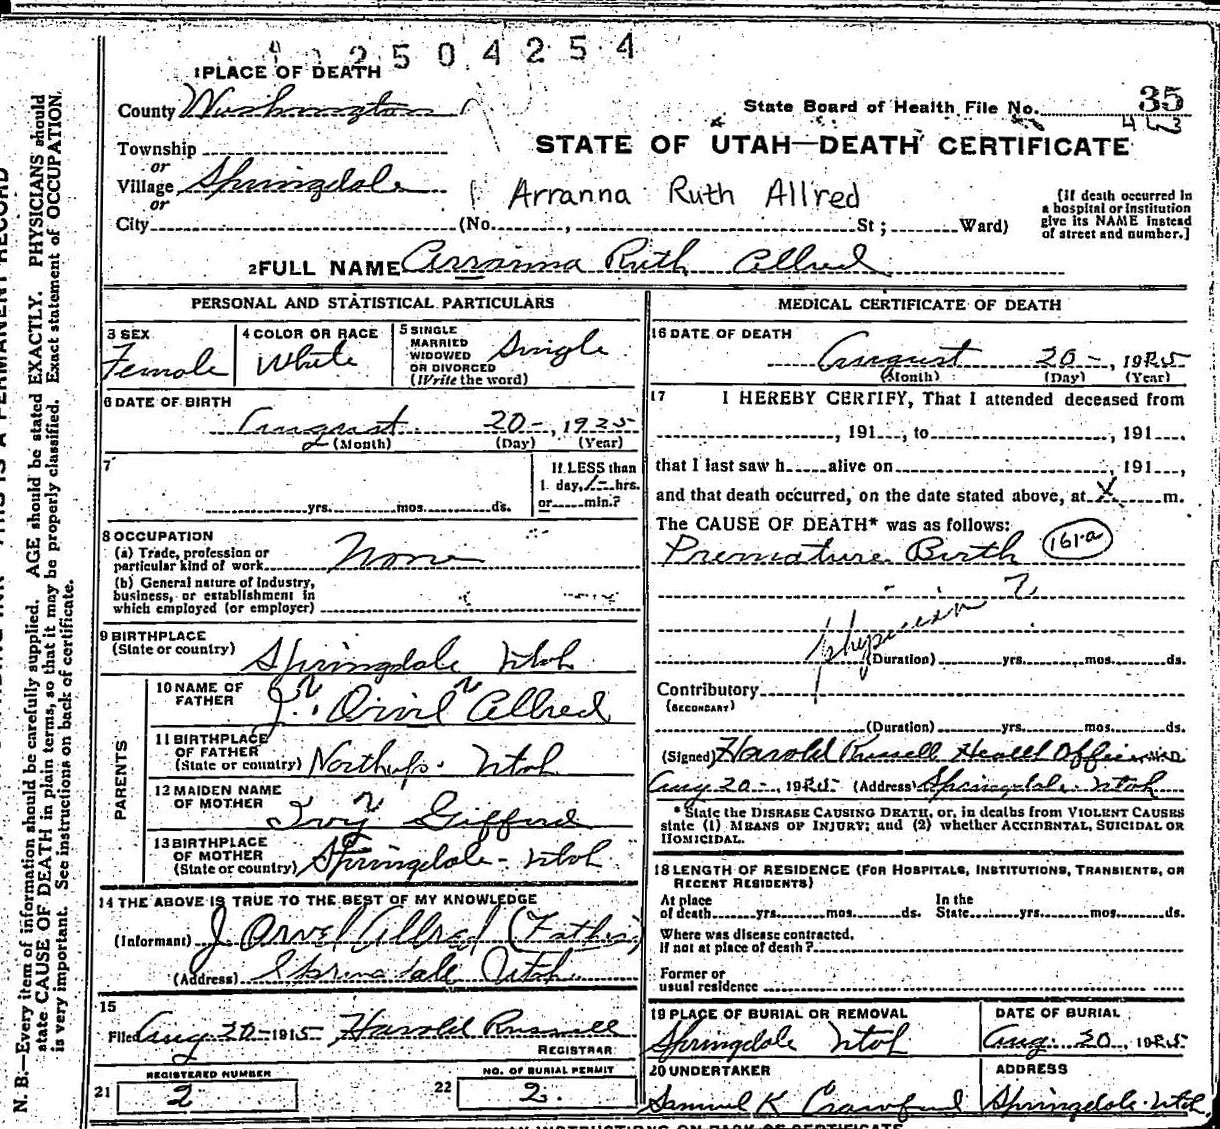 2504254
1 PLACE OF DEATH
County Washington
State Board of Health File No. 35
443
Township
or
STATE OF UTAH—DEATH CERTIFICATE
Village Springdale
or
Arranna Ruth Allred
City (No. , St ; Ward)
[If death occurred in
a hospital or institution
give its NAME instead
of street and number.]
2 FULL NAME Arranna Ruth Allred
PERSONAL AND STATISTICAL PARTICULARS
3 SEX
Female
4 COLOR OR RACE
White
5 SINGLE
MARRIED
WIDOWED
OR DIVORCED
(Write the word)
Single
6 DATE OF BIRTH
August 20-, 1925
(Month) (Day) (Year)
7
yrs. mos. ds.
If LESS than
1 day, 1- hrs.
or min.?
8 OCCUPATION
(a) Trade, profession or
particular kind of work None
(b) General nature of industry,
business, or establishment in
which employed (or employer)
9 BIRTHPLACE
(State or country)
Springdale Utah
PARENTS
10 NAME OF
FATHER
J. Orvil Allred
11 BIRTHPLACE
OF FATHER
(State or country) Northup. Utah
12 MAIDEN NAME
OF MOTHER
Ivy Gifford
13 BIRTHPLACE
OF MOTHER
(State or country) Springdale - Utah
14 THE ABOVE IS TRUE TO THE BEST OF MY KNOWLEDGE
(Informant) J. Orvel Allred (Father)
(Address) Springdale Utah
15
Filed Aug 20- 1915, Harold Russell
REGISTRAR
REGISTERED NUMBER
21 2
NO. OF BURIAL PERMIT
22 2.
MEDICAL CERTIFICATE OF DEATH
16 DATE OF DEATH
August 20-, 1925
(Month) (Day) (Year)
17 I HEREBY CERTIFY, That I attended deceased from
, 191 , to , 191 .
that I last saw h alive on , 191 ,
and that death occurred, on the date stated above, at X m.
The CAUSE OF DEATH* was as follows:
Premature Birth 161-a
physician ?
(Duration) yrs. mos. ds.
Contributory
(SECONDARY)
(Duration) yrs. mos. ds.
(Signed) Harold Russell Health Officer M.D.
Aug 20-, 1925 (Address) Springdale. Utah
* State the DISEASE CAUSING DEATH, or, in deaths from VIOLENT CAUSES
state (1) MEANS OF INJURY; and (2) whether ACCIDENTAL, SUICIDAL OR
HOMICIDAL.
18 LENGTH OF RESIDENCE (FOR HOSPITALS, INSTITUTIONS, TRANSIENTS, OR
RECENT RESIDENTS)
At place
of death yrs. mos. ds.
In the
State yrs. mos. ds.
Where was disease contracted,
If not at place of death ?
Former or
usual residence
19 PLACE OF BURIAL OR REMOVAL
Springdale Utah
DATE OF BURIAL
Aug. 20, 1925
20 UNDERTAKER
Samuel K Crawford
ADDRESS
Springdale. Utah
N. B.—Every item of information should be carefully supplied. AGE should be stated EXACTLY. PHYSICIANS should
state CAUSE OF DEATH in plain terms, so that it may be properly classified. Exact statement of OCCUPATION
is very important. See instructions on back of certificate.